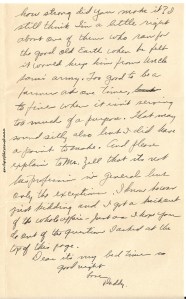 how strong did you make it? I
still think I'm a little right
about one of them who ran for
the good old Earth when he felt
it would keep him from
some army. Too good to be a
farmer at one time,
to fines when it isn't serving
too much of a purpose. That may
sound silly, also but I did have
a point to make. And please
explain to Mr. that its not
his profession in general but
only the exception. I know he was
just kidding and I got a kick out
of the whole affair - just as I hope you
do out of the question I asked at the
top of this page.
Dear its my bed time so
good night
Love
Daddy